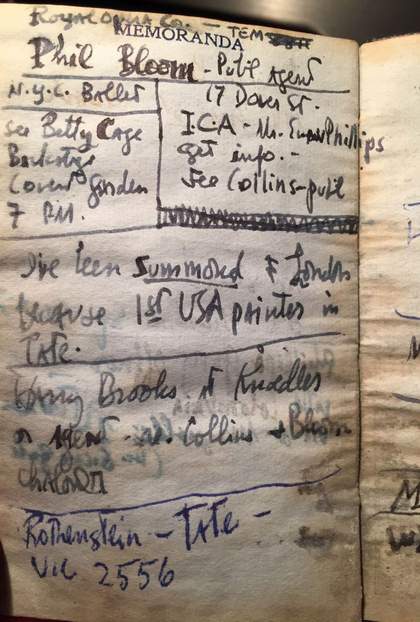 Royal Opera Co. — TEM
MEMORANDA
Phil Bloom - Publ Agent
N.Y.C. Ballet
see Betty Cage
Backstage
Covent Garden
7 P.M.
17 Dover St.
I.C.A - Mr. Ewan Phillips
get info. -
See Collins - publ
I've been summoned to London
because 1st USA painter in
Tate.
Henry Brooks at Knoedler
or Agent - Collins +
Rothenstein - Tate -
Vic 2556